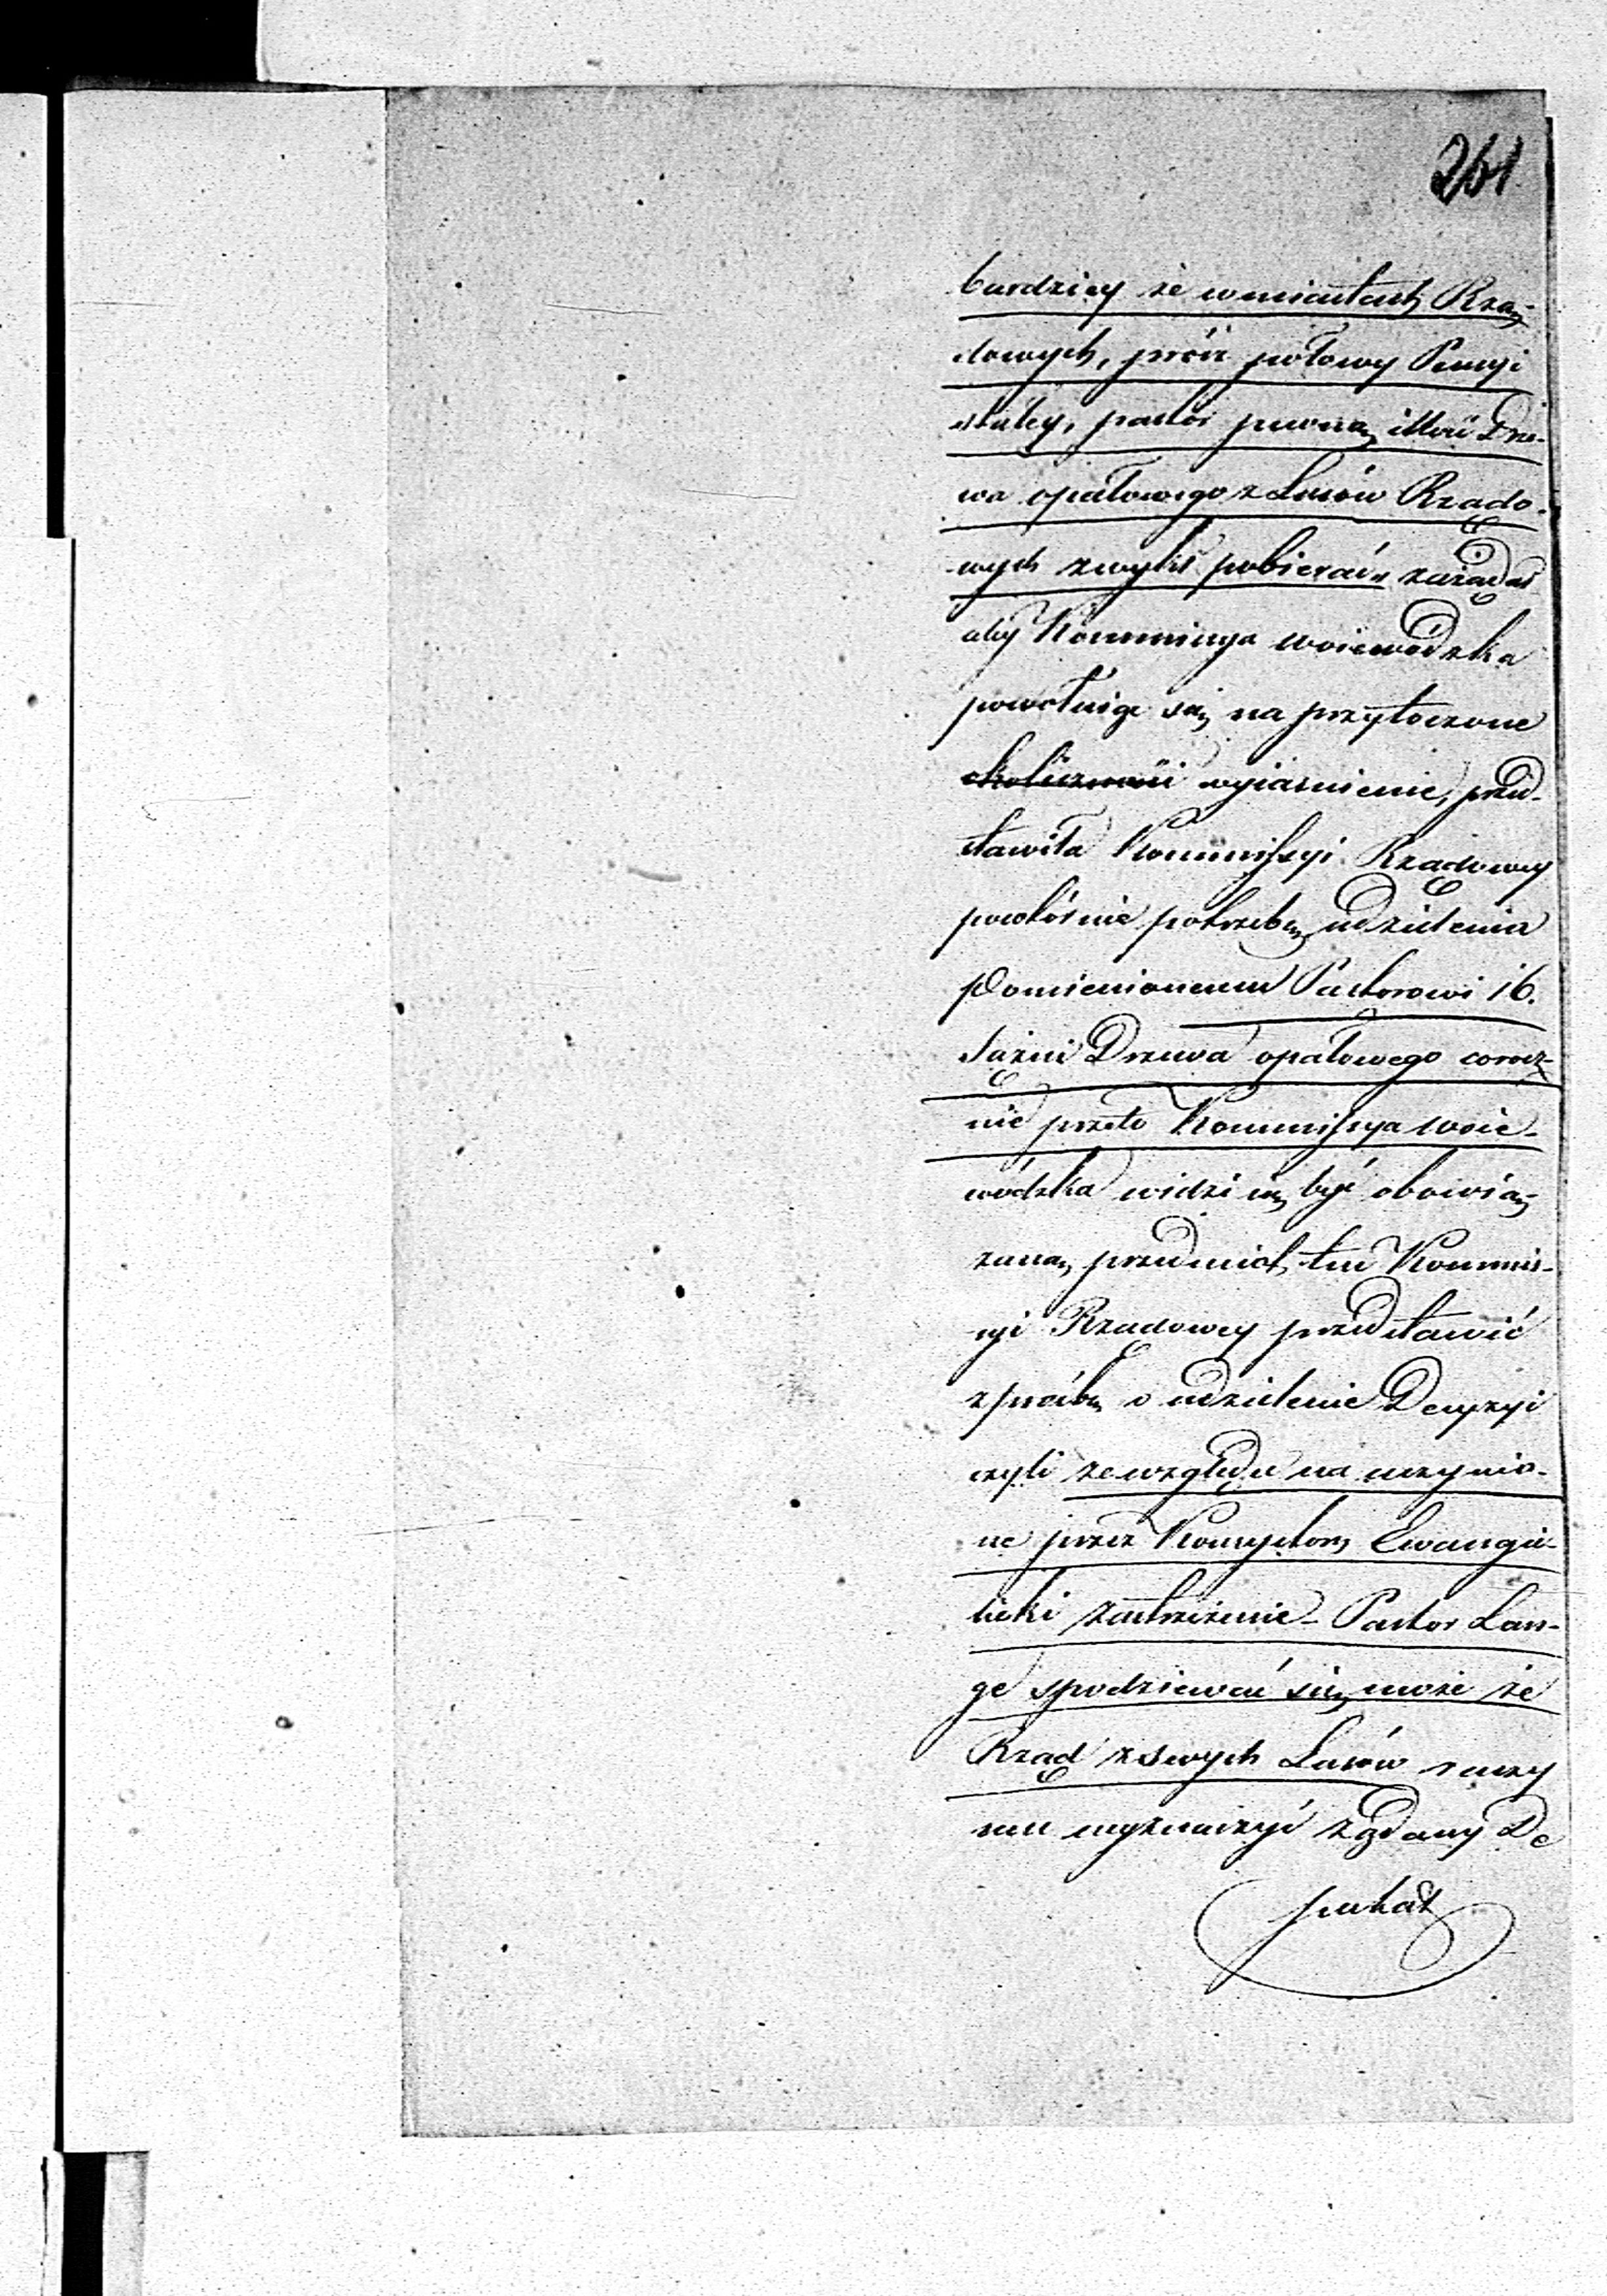 261
bardziey że w miastach Rzą-
dowych, prócz połowy Pensyi
stałey, pastor pewną illość Drze-
wa opałowego z Lasów Rządo-
wych zwykł pobierać„ zażądał
aby Kommissya woiewódzka
powołuiąc się na przytoczone
okoliczności wyiaśnienie, przed-
stawiła Kommissyi Rządowey
powtórnie potrzebę udzielenia
pomienionemu Pastorowi 16.
Sążni Drzewa opałowego corocz-
nie przeto Kommissya woie-
wódzka widzi się być obowią-
zaną przedmiot ten Kommis-
syi Rządowey przedstawić
z prośbą o udzielenie Decyzyi
czyli ze względu na uczynio-
ne przez Konsystorz Ewangie-
licki zastrzeżenie - Pastor Lan-
ge spodziewać się może że
Rząd z swych Lasów raczy
mu wyznaczyć żądany De
putat